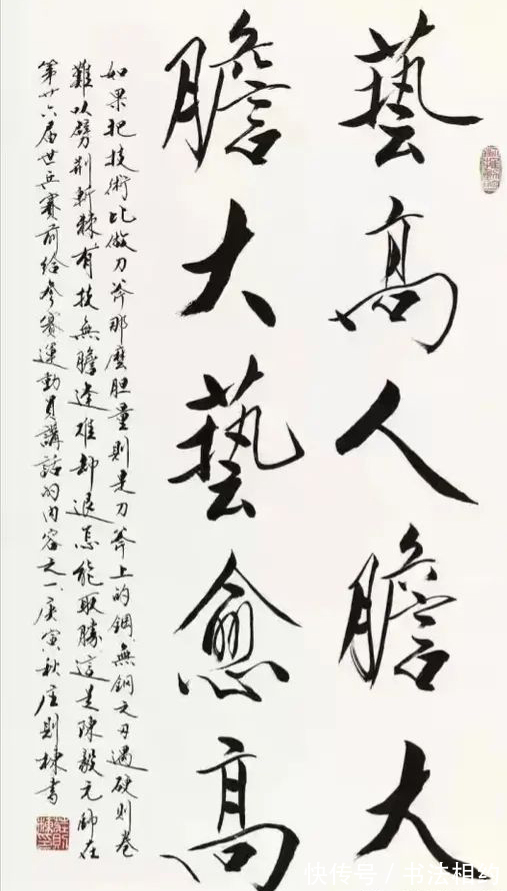 藝高人膽大
膽大藝愈高
如果把技術比做刀斧那麼胆量則是刀斧上的鋼無鋼之刃遇硬則卷
難以劈荆斬棘有技無膽逢难却退怎能取勝這是陳毅元帥在
第廿六届世乒賽前给参賽運動員講話的内容之一庚寅秋庄則棟书
快传号/书法相约